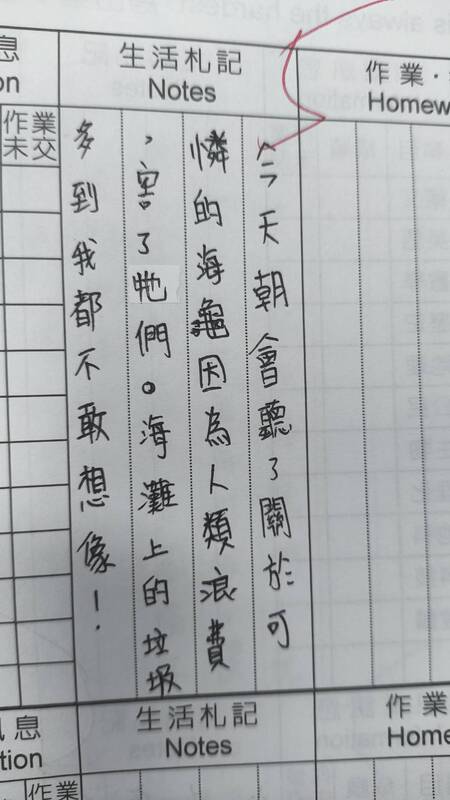 息
on
生活札記
Notes
作業・
Homew
作業
未交
今天朝會聽了關於可
憐的海龜因為人類浪費
，害了牠們。海灘上的垃圾
多到我都不敢想像！
息
tion
生活札記
Notes
作業
Home
作業